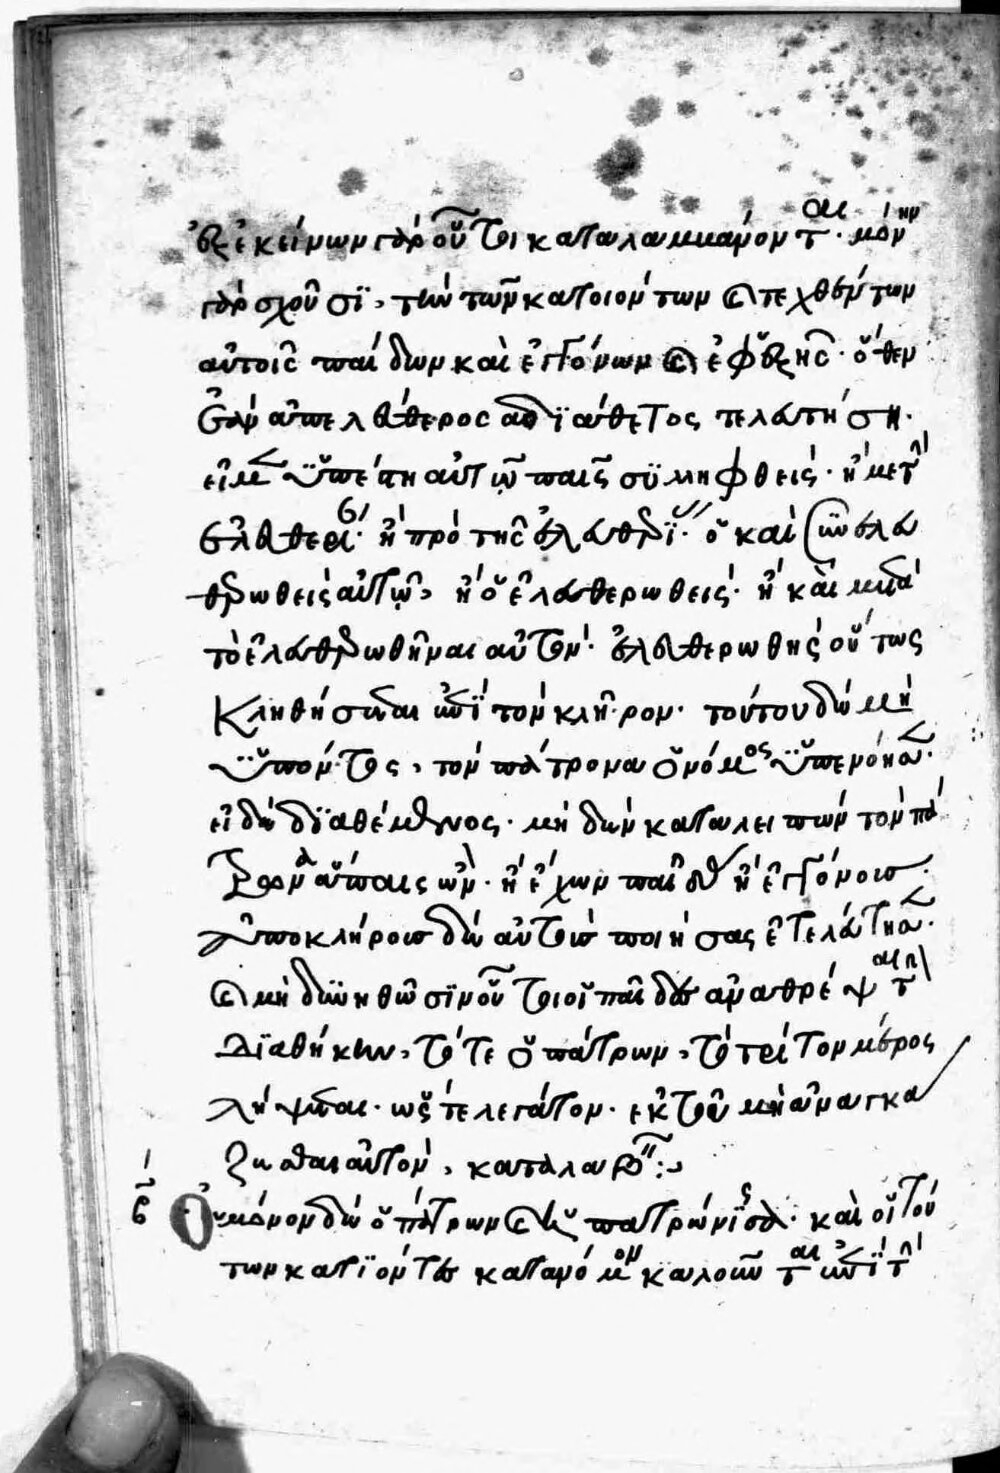 ἐξ ἐκείνων γὰρ οὗτοι καταλαμμάνοντ(αι) · μόνην
γὰρ σχοῦσι, τὴν τῶν κατοιόντων καὶ τεχθέντων
αὐτοῖς παίδων καὶ ἐγγόνων καὶ ἐφεξῆς · ὅθεν
ἐὰν ἀπελεύθερος ἀδϊάθετος τελευτήσῃ ·
εἰ μὲν ὕπεστι αὐτῷ παῖς συλληφθεὶς · ἢ μετὰ
ἐλευθερί · ἢ πρὸ τῆς ἐλευθερΐ · ὃ καὶ συνελευ
θερωθεὶς αὐτῷ, ἢ ὁ ἐλευθερωθεὶς · ἢ καὶ μετὰ
τὸ ἐλευθερωθῆναι αὐτὸν · ἐλευθερωθῆς οὕτως
κληθήσεται ἐπὶ τὸν κληρον · τούτου δὲ μὴ
ὑπόντος, τὸν πάτρονα ὁ νόμος
εἰ δὲ διαθέμενος · μὴ δὲν καταλειπὼν τὸν πά
τρωνα ἄπαις ὢν · ἢ ἔχων παῖδ ἢ ἐγγόνους ·
ἀποκλήρους δὲ αὐτοὺς ποιήσας ἐτελεύτησεν ·
καὶ μὴ δυνηθῶσιν οὗτοι οἱ παῖδες ἀναθρέψαι τὴν
διαθήκην, τότε ὁ πάτρων, τὸ τρίτον μέρος
λήψεται · ὡς τε λεγάτον · ἐκ τοῦ μὴ ἀναγκά
ζεσθαι αὐτὸν, καταλαβ :
Οὐ μόνον δὲ ὁ πάτρων καὶ ἡ πατρώνισσα · καὶ οἱ τού
των κατιόντες κατα νόμον καλοῦνται ἐπὶ τὴν